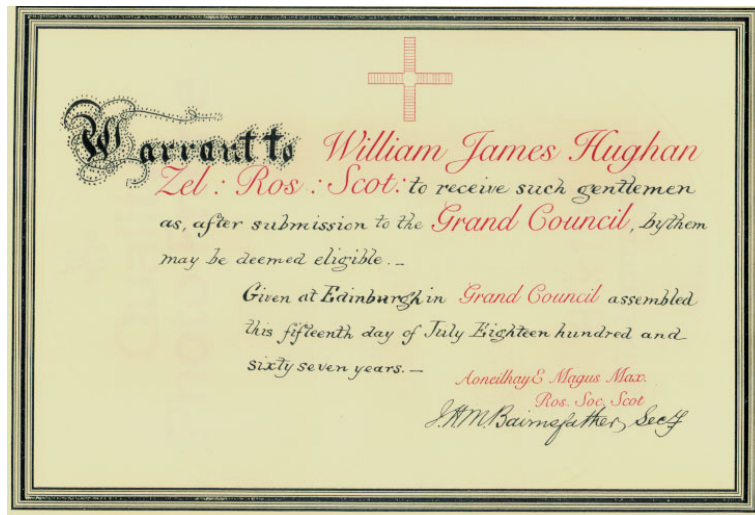 Warrant to William James Hughan
Zel : Ros : Scot: to receive such gentlemen
as, after submission to the Grand Council, by them
may be deemed eligible. –
Given at Edinburgh in Grand Council assembled
this fifteenth day of July Eighteen hundred and
sixty seven years. –
Aoneilhay E Magus Max.
Ros. Soc. Scot
J.H.M. Bairnsfather, Secy